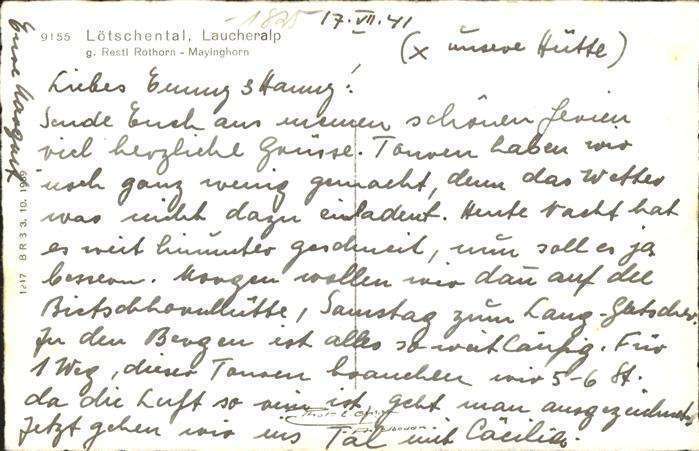 1825 17. VII. 41
9155 Lötschental, Laucheralp
g. Restl Rothorn - Mayinghorn
(x unsere Hütte)
Liebes Emmy & Hanny!
Sende Euch aus meinen schönen Ferien
viel herzliche Grüsse. Touren haben wir
noch ganz wenig gemacht, denn das Wetter
was nicht dazu einladent. Heute Nacht hat
es weit hinunter geschneit, nun soll es ja
bessern. Morgen wollen wir dan auf die
Bietschhornhütte, Samstag zum Lang-Gletscher.
In den Bergen ist alles so weitläufig. Für
1 Weg, dieser Touren brauchen wir 5-6 St.
da die Luft so rein ist, geht man ausgezeichnet.
Jetzt gehen wir ins Tal mit Cäcilia.
Eure Margrit
1217 B R B 3. 10. 1939